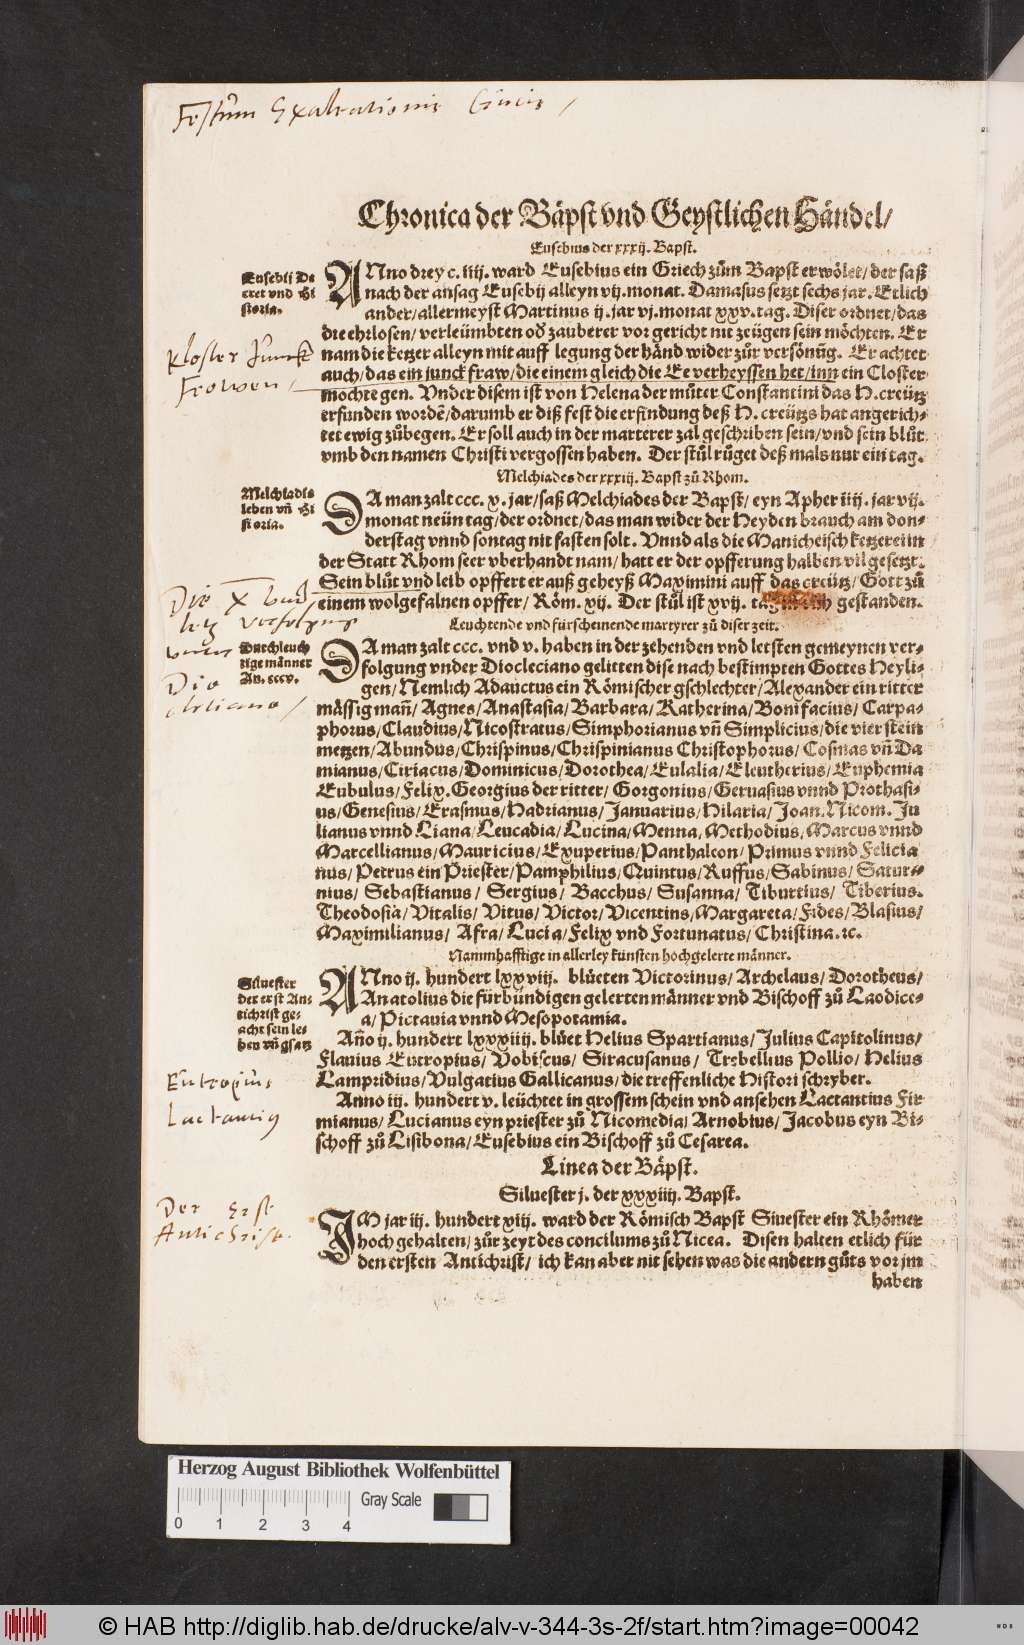 Festum Exaltationis Crucis /
Chronica der Bäpst vnd Geystlichen Händel/
Eusebius der xxxij. Bapst.
Eusebij De
cret vnd Hi
storia.
ANno drey c. iiij. ward Eusebius ein Griech zům Bapst erwölet/ der saß
nach der ansag Eusebij alleyn vij. monat. Damasus setzt sechs jar. Etlich
ander/ allermeyst Martinus ij. jar vj. monat xxv. tag. Diser ordnet/ das
die ehrlosen/ verleümbten oď zauberer vor gericht nit zeügen sein möchten. Er
Kloster Junck
Frowen /
nam die ketzer alleyn mit auff legung der händ wider zůr versönũg. Er achtet
auch/ das ein junckfraw/ die einem gleich die Ee verheyssen het/ inn ein Closter
möchte gen. Vnder disem ist von Helena der můter Constantini das H. creütz
erfunden wordẽ/ darumb er diß fest die erfindung deß H. creützs hat angerich-
tet ewig zůbegen. Er soll auch in der marterer zal geschriben sein/ vnd sein blůt
vmb den namen Christi vergossen haben. Der stůl růget deß mals nur ein tag.
Melchiades der xxxij. Bapst zů Rhom.
Melchiadis
leben vñ Hi
storia.
DA man zalt ccc. x. jar/ saß Melchiades der Bapst/ eyn Apher iiij. jar vij.
monat neün tag/ der ordnet/ das man wider der Heyden brauch am don-
derstag vnnd sontag nit fasten solt. Vnnd als die Manicheisch ketzerei in
der Statt Rhom seer vberhandt nam/ hatt er der opfferung halben vil gesetzt.
Sein blůt vnd leib opffert er auß geheyß Maximini auff das creütz/ Gott zů
einem wolgefalnen opffer/ Röm. xij. Der stůl ist xvij. tag gestanden.
Die X vnd
letz verfolgung
vnder
Dio
cletiano /
Leuchtende vnd fürscheinende martyrer zů diser zeit.
Durchleuch
tige männer
An. cccv.
DA man zalt ccc. vnd v. haben in der zehenden vnd letsten gemeynen ver-
folgung vnder Diocleciano gelitten dise nach bestimpten Gottes Heyli-
gen/ Nemlich Adauctus ein Römischer gschlechter/ Alexander ein ritter
mässig mañ/ Agnes/ Anastasia/ Barbara/ Katherina/ Bonifacius/ Carpa-
phorus/ Claudius/ Nicostratus/ Simphorianus vñ Simplicius/ die vier stein
metzen/ Abundus/ Chrispinus/ Chrispinianus Christophorus/ Cosmas vñ Da
mianus/ Ciriacus/ Dominicus/ Dorothea/ Eulalia/ Eleutherius/ Euphemia
Eubulus/ Felix. Georgius der ritter/ Gorgonius/ Geruasius vnnd Prothasi-
us/ Genesius/ Erasmus/ Hadrianus/ Januarius/ Hilaria/ Joan. Nicom. Ju
lianus vnnd Liana/ Leucadia/ Lucina/ Menna, Methodius, Marcus vnnd
Marcellianus/ Mauricius/ Exuperius/ Panthaleon/ Primus vnnd Felicia
nus/ Petrus ein Priester/ Pamphilius/ Quintus/ Ruffus/ Sabinus/ Satur-
nius/ Sebastianus/ Sergius/ Bacchus/ Susanna/ Tiburtius/ Tiberius.
Theodosia/ Vitalis/ Vitus/ Victor/ Vicentius, Margareta/ Fides/ Blasius/
Maximilianus/ Afra/ Lucia/ Felix vnd Fortunatus/ Christina. ꝛc.
Nammhafftige in allerley künsten hochgelerte männer.
Siluester
der erst An-
tichrist ge-
acht sein le-
ben vñ gsatz
ANno ij. hundert lxxviij. blüeten Victorinus/ Archelaus/ Dorotheus/
Anatolius die fürbündigen gelerten männer vnd Bischoff zů Laodice-
a/ Pictauia vnnd Mesopotamia.
Año ij. hundert lxxxiiij. blüet Helius Spartianus/ Julius Capitolinus/
Flauius Eutropius/ Vobiscus/ Siracusanus/ Trebellius Pollio/ Helius
Lampridius/ Vulgatius Gallicanus/ die treffenliche Histori schryber.
Eutropius
Lactantius
Anno iij. hundert v. leüchtet in grossem schein vnd ansehen Lactantius Fir
mianus/ Lucianus eyn priester zů Nicomedia/ Arnobius/ Jacobus eyn Bi-
schoff zů Lisibona/ Eusebius ein Bischoff zů Cesarea.
Linea der Bäpst.
Siluester j. der xxxiiij. Bapst.
Der Erst
Antichrist.
IM jar iij. hundert xiij. ward der Römisch Bapst Siuester ein Rhömer
hoch gehalten/ zůr zeyt des concilums zů Nicea. Disen halten etlich für
den ersten Antichrist/ ich kan aber nit sehen was die andern gůts vor jm
haben
Herzog August Bibliothek Wolfenbüttel
Gray Scale
0 1 2 3 4
© HAB http://diglib.hab.de/drucke/alv-v-344-3s-2f/start.htm?image=00042